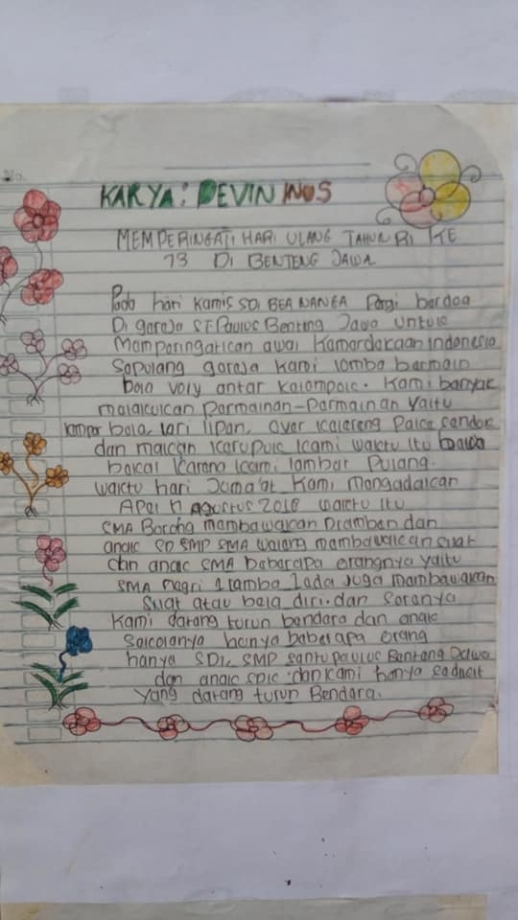 No.
KARYA: DEVIN INOS
MEMPERINGATI HARI ULANG TAHUN RI KE
73 DI BENTENG JAWA
Pado hari kamis SDI BEA NANGA Pargi berdoa
Di garaja ST. Paulus Benting Jawa untuk
Mamparingatican awai Kamardakaan Indonesia
Sapulang garaja kami lomba barmain
bola voly antar kalompok. Kami banyak
malakukan Parmainan-Parmainan yaitu
lompar bola, lari lipan, over kalereng Pakce sendok
dan makan karupuk kami waktu itu bawa
bakal karana kami lambat Pulang.
waktu hari Juma'at Kami mangadakan
APal 17 agustus 2018 waktu itu
SMA Borong mambawakan Dramben dan
anak SD SMP SMA walang mambawakan suat
dan anak SMA babarapa orangnya yaitu
SMA nagri 1 lamba 1ada Juga mambawakan
suat atau bela diri. dan Soranya
kami datang turun bendara dan anak
Sakolanya hanya babarapa orang
hanya SDI, SMP santu paulus Bentang Jawa
dan anak SDK. dan kami hanya saduat
yang datang turun Bendara.